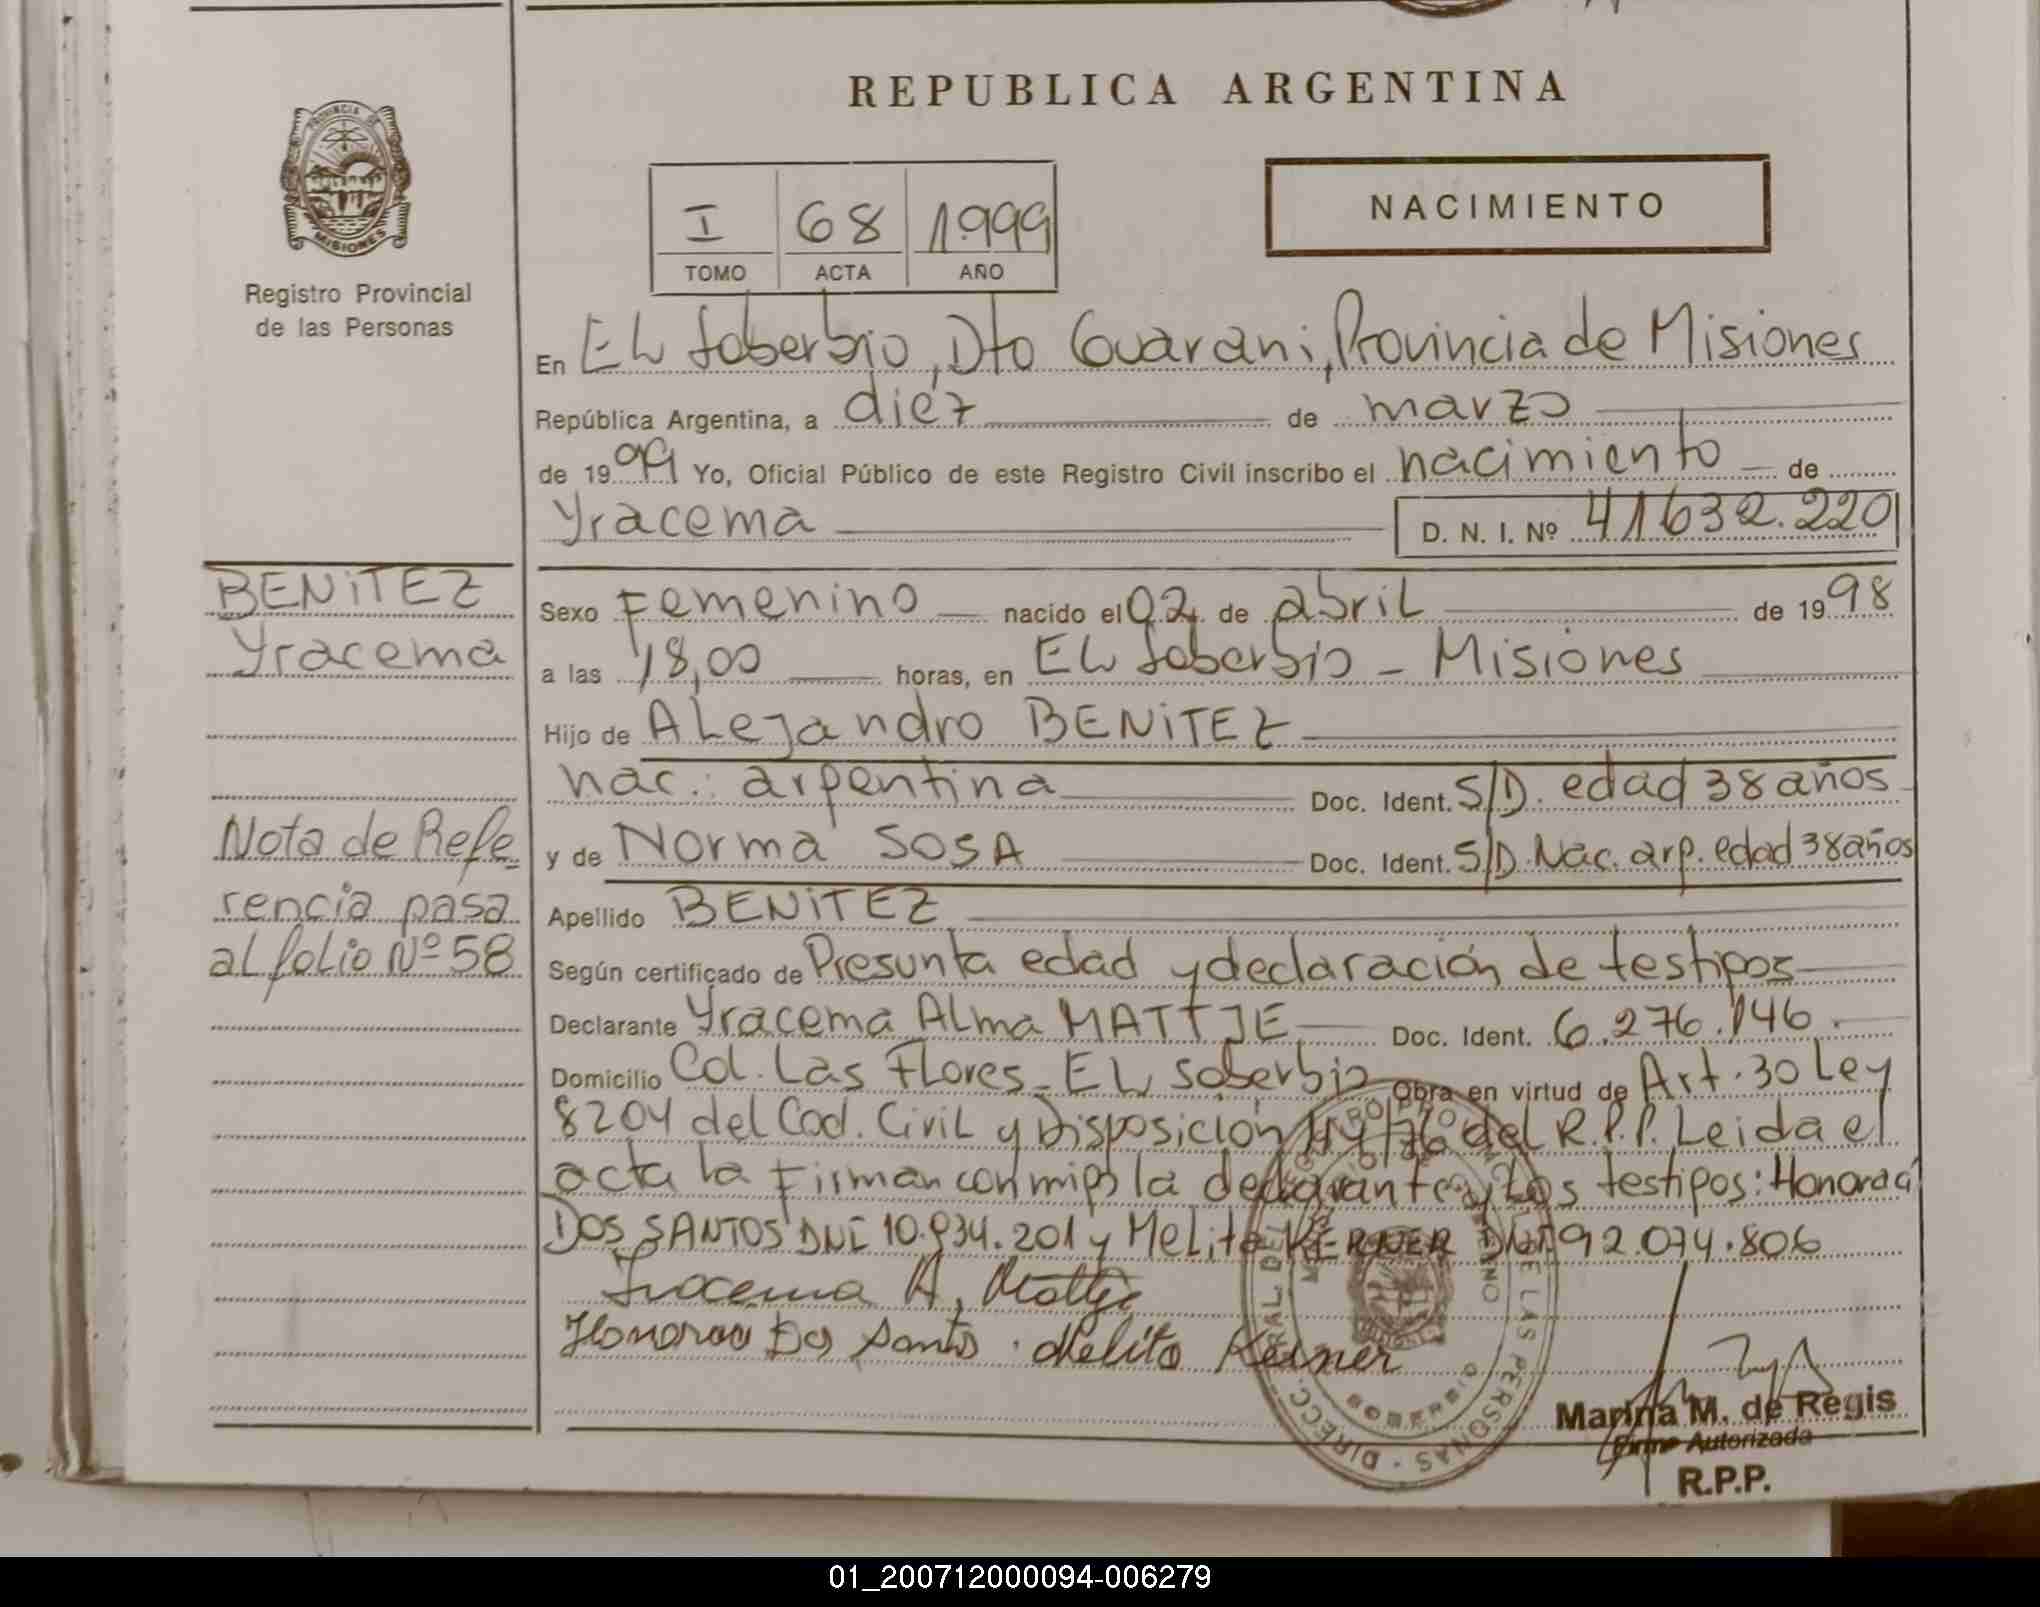 REPUBLICA ARGENTINA
PROVINCIA DE
MISIONES
Registro Provincial
de las Personas
I 68 1999
TOMO ACTA AÑO
NACIMIENTO
En EL Soberbio, Dto Guarani, Provincia de Misiones
República Argentina, a diéz de marzo
de 1999 Yo, Oficial Público de este Registro Civil inscribo el nacimiento de
Yracema D. N. I. Nº 41632.220
BENITEZ
Yracema
Nota de Refe
rencia pasa
al folio Nº 58
Sexo Femenino nacido el 02 de abril de 1998
a las 18,00 horas, en EL Soberbio - Misiones
Hijo de ALejandro BENITEZ
nac.: argentina Doc. Ident. S/D. edad 38 años
y de Norma SOSA Doc. Ident. S/D. Nac. arg. edad 38 años
Apellido BENITEZ
Según certificado de Presunta edad y declaración de testigos
Declarante Yracema ALma MATTJE Doc. Ident. 6.276.146.
Domicilio Col. Las Flores - EL Soberbio Obra en virtud de Art. 30 Ley
8204 del Cod. Civil y Disposición del R.P.P. Leida el
acta la Firman conmigo la declarante y Los testigos:
DOS SANTOS DNI 10.934.201 y Melita KERNER DNI 92.074.806
Yracema A. Mattje
Dos Santos Melita Kerner
SOBERBIO
Marina M. de Regis
Firma Autorizada
R.P.P.
01_200712000094-006279